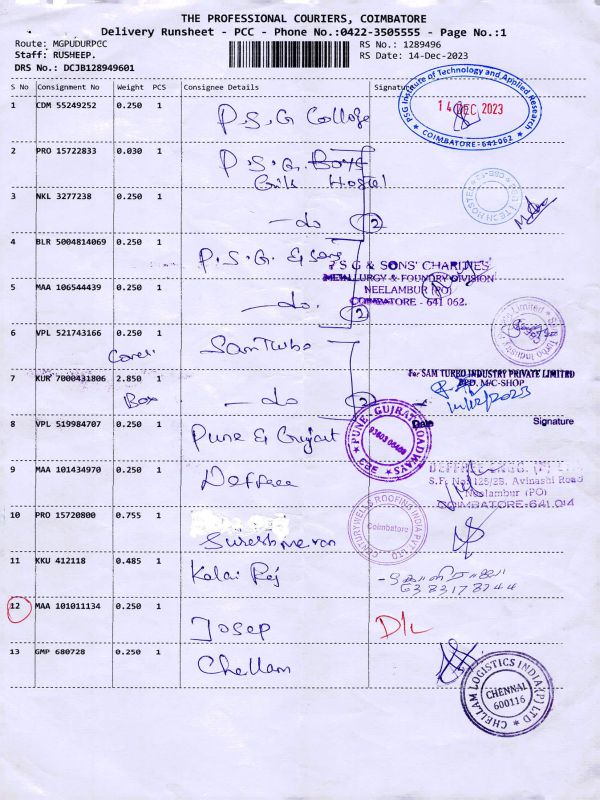 THE PROFESSIONAL COURIERS, COIMBATORE
Delivery Runsheet - PCC - Phone No.:0422-3505555 - Page No.:1
Route: MGPUDURPCC
Staff: RUSHEEP.
DRS No.: DCJB128949601
RS No.: 1289496
RS Date: 14-Dec-2023
S No Consignment No Weight PCS Consignee Details Signature
1 CDM 55249252 0.250 1 P.S.G College
PSG Institute of Technology and Applied Research
14 DEC 2023
COIMBATORE - 641 062
2 PRO 15722833 0.030 1 P.S.G. Boys
Girls Hostel
3 NKL 3277238 0.250 1 -do 2
4 BLR 5004814069 0.250 1 P.S.G. & Sons
P S G & SONS' CHARITIES
METALLURGY & FOUNDRY DIVISION
NEELAMBUR (PO)
COIMBATORE - 641 062.
5 MAA 106544439 0.250 1 -do. 2
6 VPL 521743166 0.250 1 Sam Turbo
Cover
For SAM TURBO INDUSTRY PRIVATE LIMITED
PRD. M/C-SHOP
7 KUR 7000431806 2.850 1 -do 2
Box
14/12/2023
Date Signature
8 VPL 519984707 0.250 1 Pune & Gujarat
PUNE GUJRAT ROADWAYS
CBE
9 MAA 101434970 0.250 1 Deffree
S.F. No. 125/2B, Avinashi Road
Neelambur (PO)
COIMBATORE-641 014
10 PRO 15720800 0.755 1 Sureshmenon
CENTURYWELLS ROOFING INDIA PVT LTD
Coimbatore
11 KKU 412118 0.485 1 Kalai Raj
6383178244
12 MAA 101011134 0.250 1 Josep D/L
13 GMP 680728 0.250 1 Chellam
CHELLAM LOGISTICS INDIA (P) LTD
CHENNAI
600116